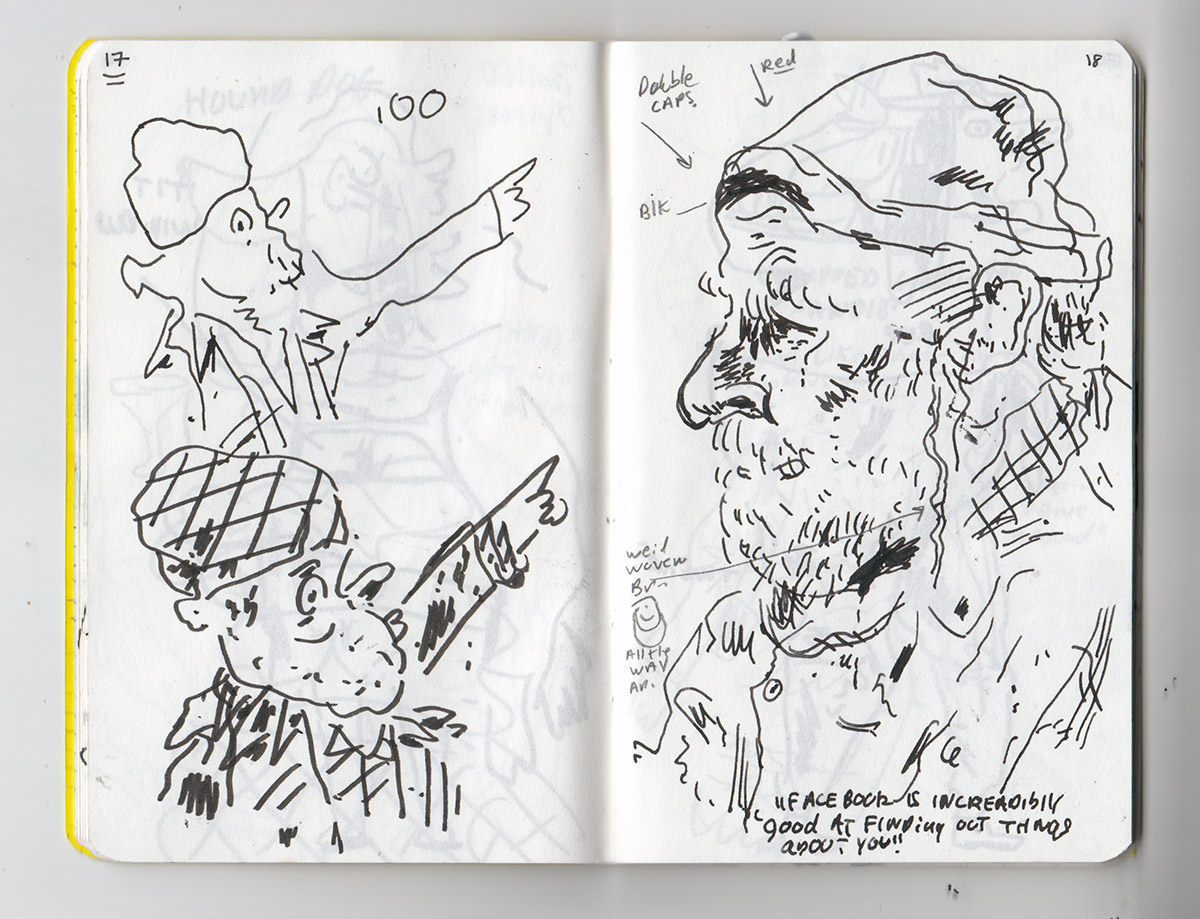 17
100
HOUND DOG
18
Double
CAPS
red
Blk
weid
woven
All the
WAY
"FACEBOOK IS INCREADIBLY
good AT FINDING OUT THINGS
ABOUT YOU!!